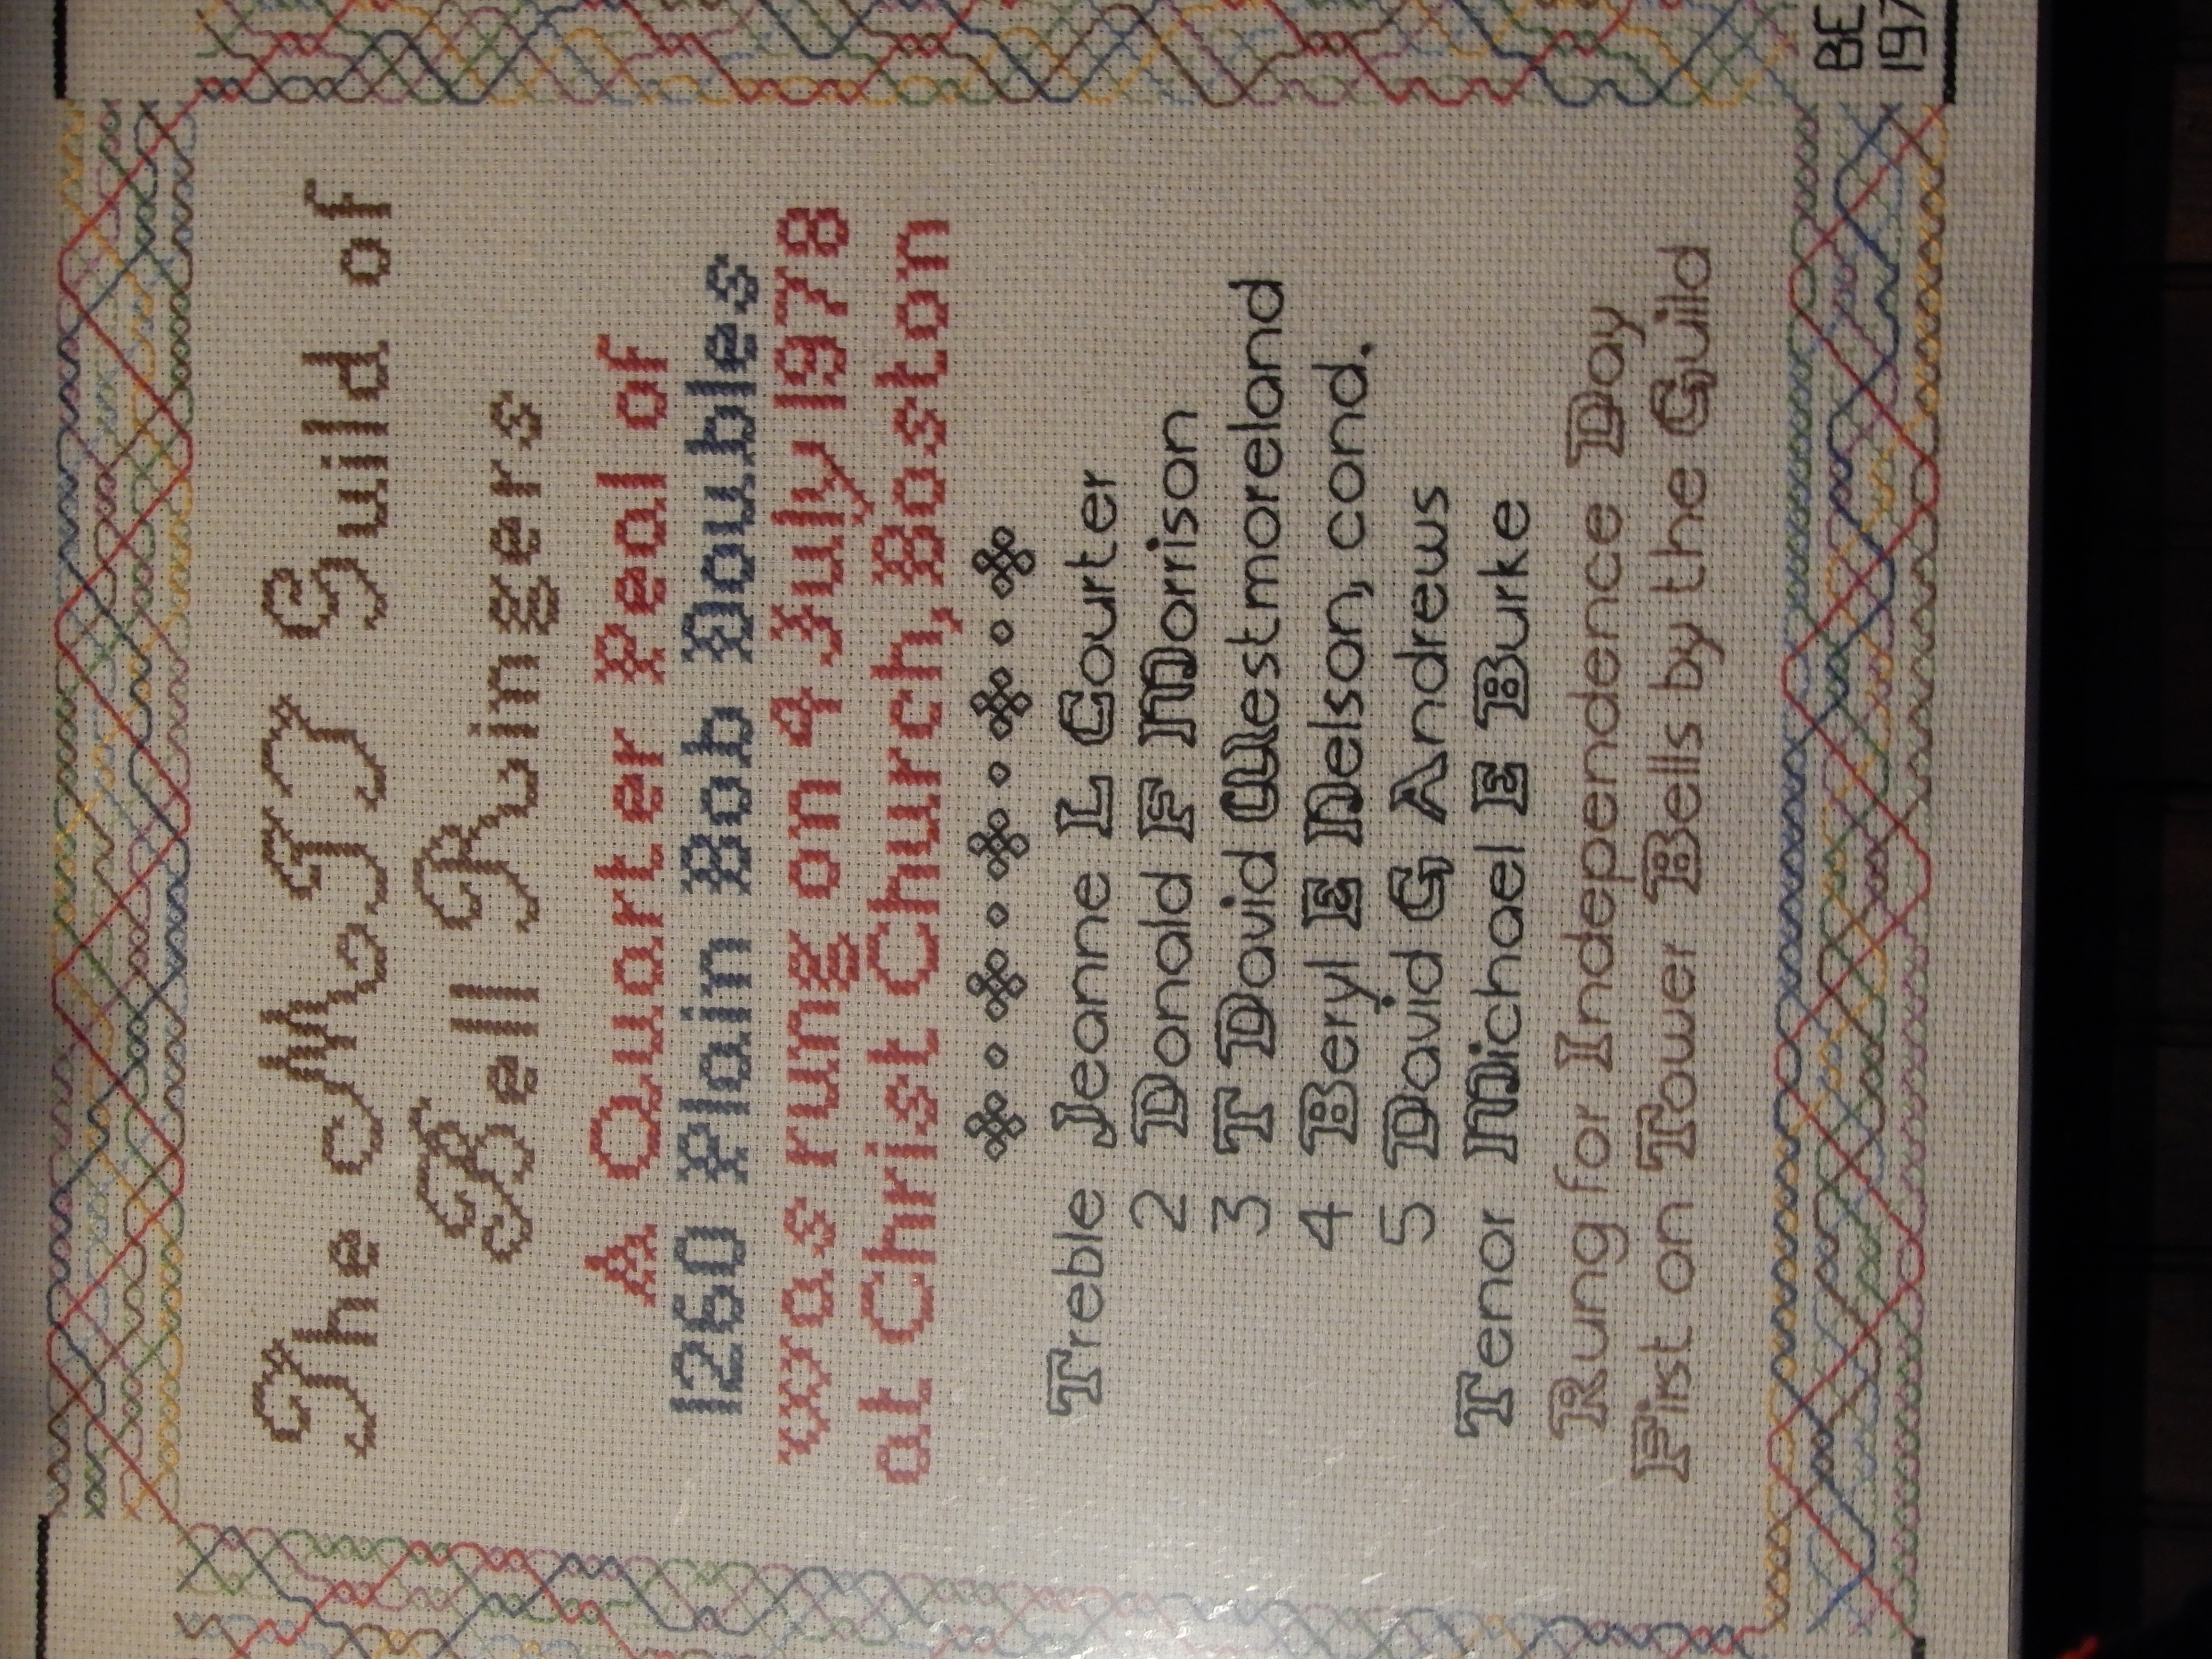 The MIT Guild of
Bell Ringers
A Quarter Peal of
1260 Plain Bob Doubles
was rung on 4 July 1978
at Christ Church, Boston
Treble Jeanne L Courter
2 Donald F Morrison
3 T David Westmoreland
4 Beryl E Nelson, cond.
5 David G Andrews
Tenor Michael E Burke
Rung for Independence Day
First on Tower Bells by the Guild
BE
197